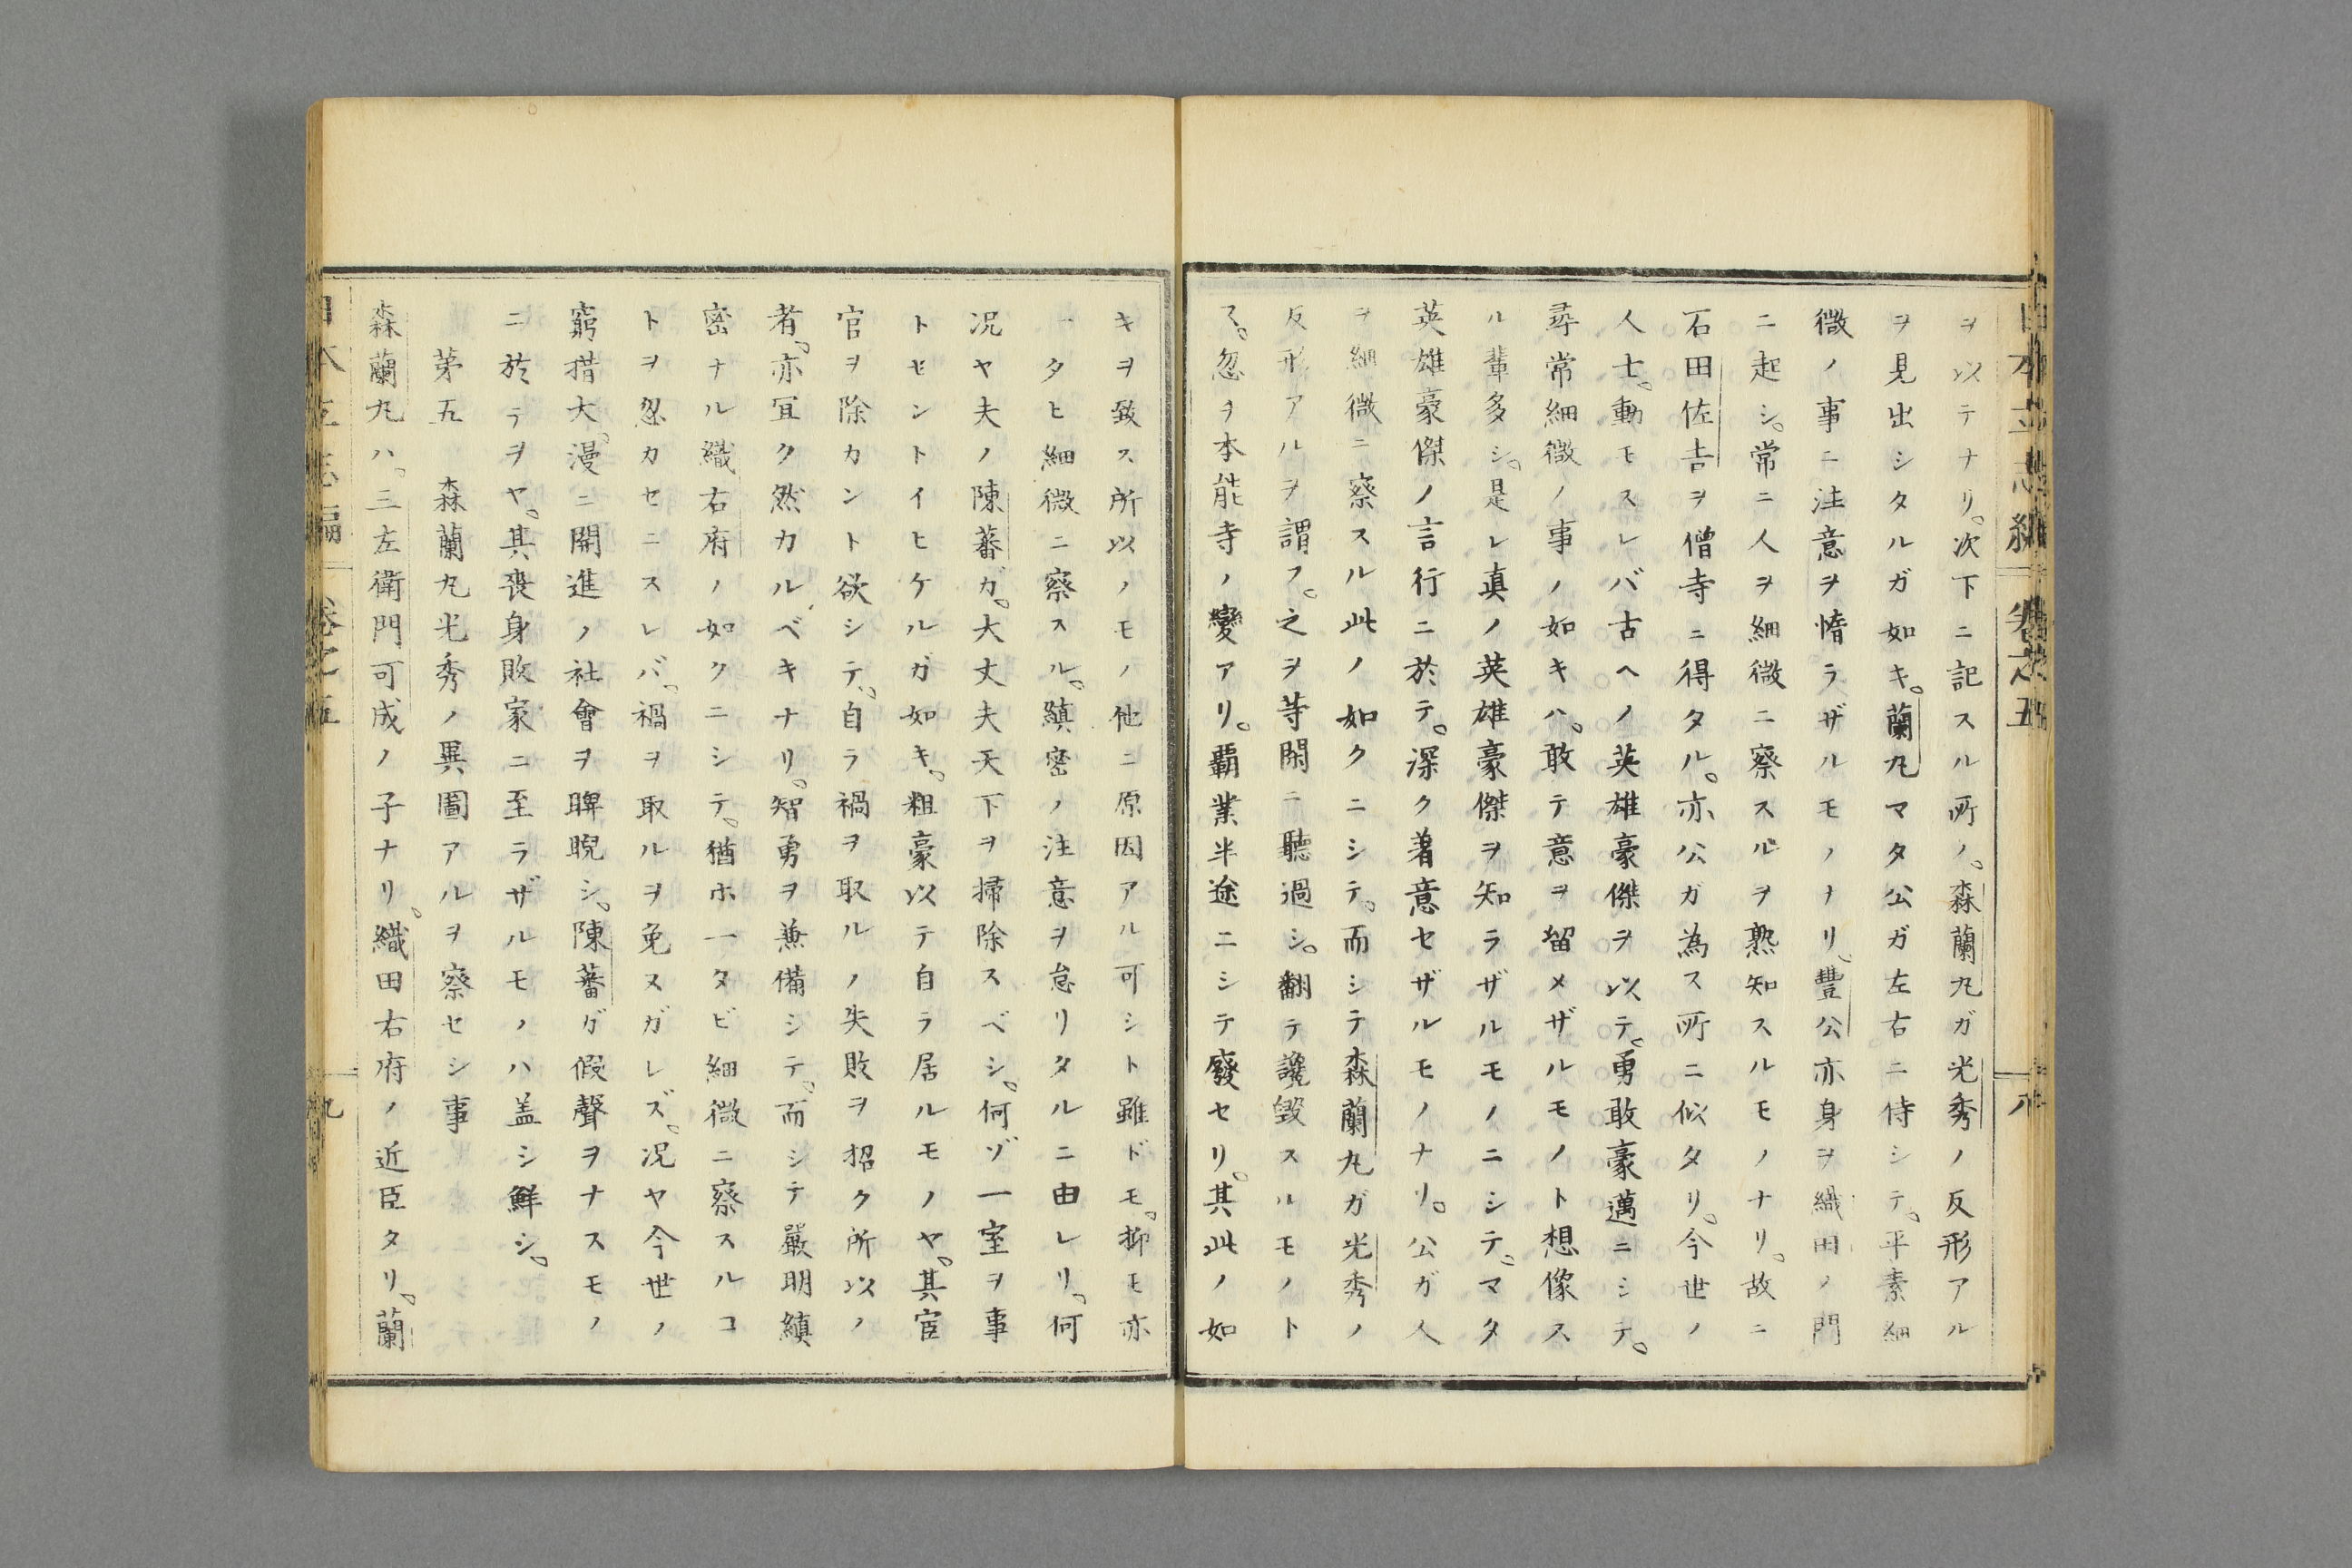 ヲ以テナリ。次下ニ記スル所ノ。森蘭丸ガ光秀ノ反形アル
ヲ見出シタルガ如キ。蘭丸マタ公ガ左右ニ侍シテ。平素細
微ノ事ニ注意ヲ惰ラザルモノナリ。豐公亦身ヲ織田ノ門
ニ起シ。常ニ人ヲ細微ニ察スルヲ熟知スルモノナリ。故ニ
石田佐吉ヲ僧寺ニ得タル。亦公ガ為ス所ニ似タリ。今世ノ
人士。動モスレバ古ヘノ英雄豪傑ヲ以テ。勇敢豪邁ニシテ。
尋常細微ノ事ノ如キハ。敢テ意ヲ留メザルモノト想像ス
ル輩多シ。是レ真ノ英雄豪傑ヲ知ラザルモノニシテ。マタ
英雄豪傑ノ言行ニ於テ。深ク著意セザルモノナリ。公ガ人
ヲ細微ニ察スル此ノ如クニシテ。而シテ森蘭丸ガ光秀ノ
反形アルヲ謂フ。之ヲ等閑ニ聽過シ。翻テ讒毀スルモノト
ス。忽ヲ本能寺ノ變アリ。覇業半途ニシテ廢セリ。其此ノ如
キヲ致ス所以ノモノ他ニ原因アル可シト雖ドモ。抑モ亦
一タヒ細微ニ察スル。縝密ノ注意ヲ怠リタルニ由レリ。何
况ヤ夫ノ陳蕃ガ。大丈夫天下ヲ掃除スベシ。何ゾ一室ヲ事
トセントイヒケルガ如キ。粗豪以テ自ラ居ルモノヤ。其宦
官ヲ除カント欲シテ。自ラ禍ヲ取ルノ失敗ヲ招ク所以ノ
者。亦冝ク然カルベキナリ。智勇ヲ兼備シテ。而シテ嚴明縝
密ナル織右府ノ如クニシテ。猶ホ一タビ細微ニ察スルコ
トヲ忽カセニスレバ。禍ヲ取ルヲ免ヌガレズ。况ヤ今世ノ
窮措大。漫ニ開進ノ社會ヲ睥睨シ。陳蕃ガ假聲ヲナスモノ
ニ於テヲヤ。其喪身敗家ニ至ラザルモノハ盖シ鮮シ。
茅五　森蘭丸光秀ノ異圖アルヲ察セシ事
森蘭丸ハ。三左衛門可成ノ子ナリ。織田右府ノ近臣タリ。蘭